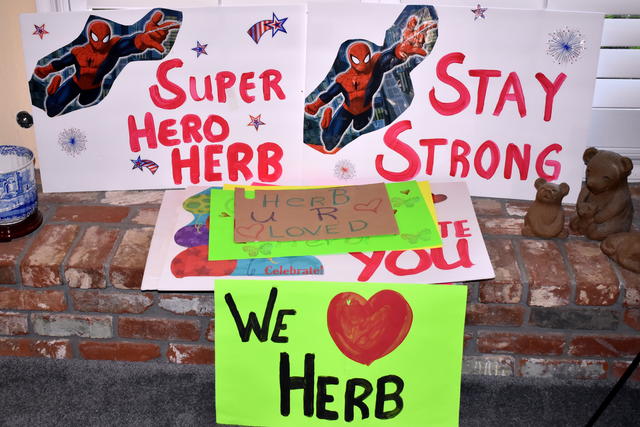 SUPER
HERO
HERB
STAY
STRONG
HERB
U R
LOVED
Celebrate!
YOU
WE
HERB